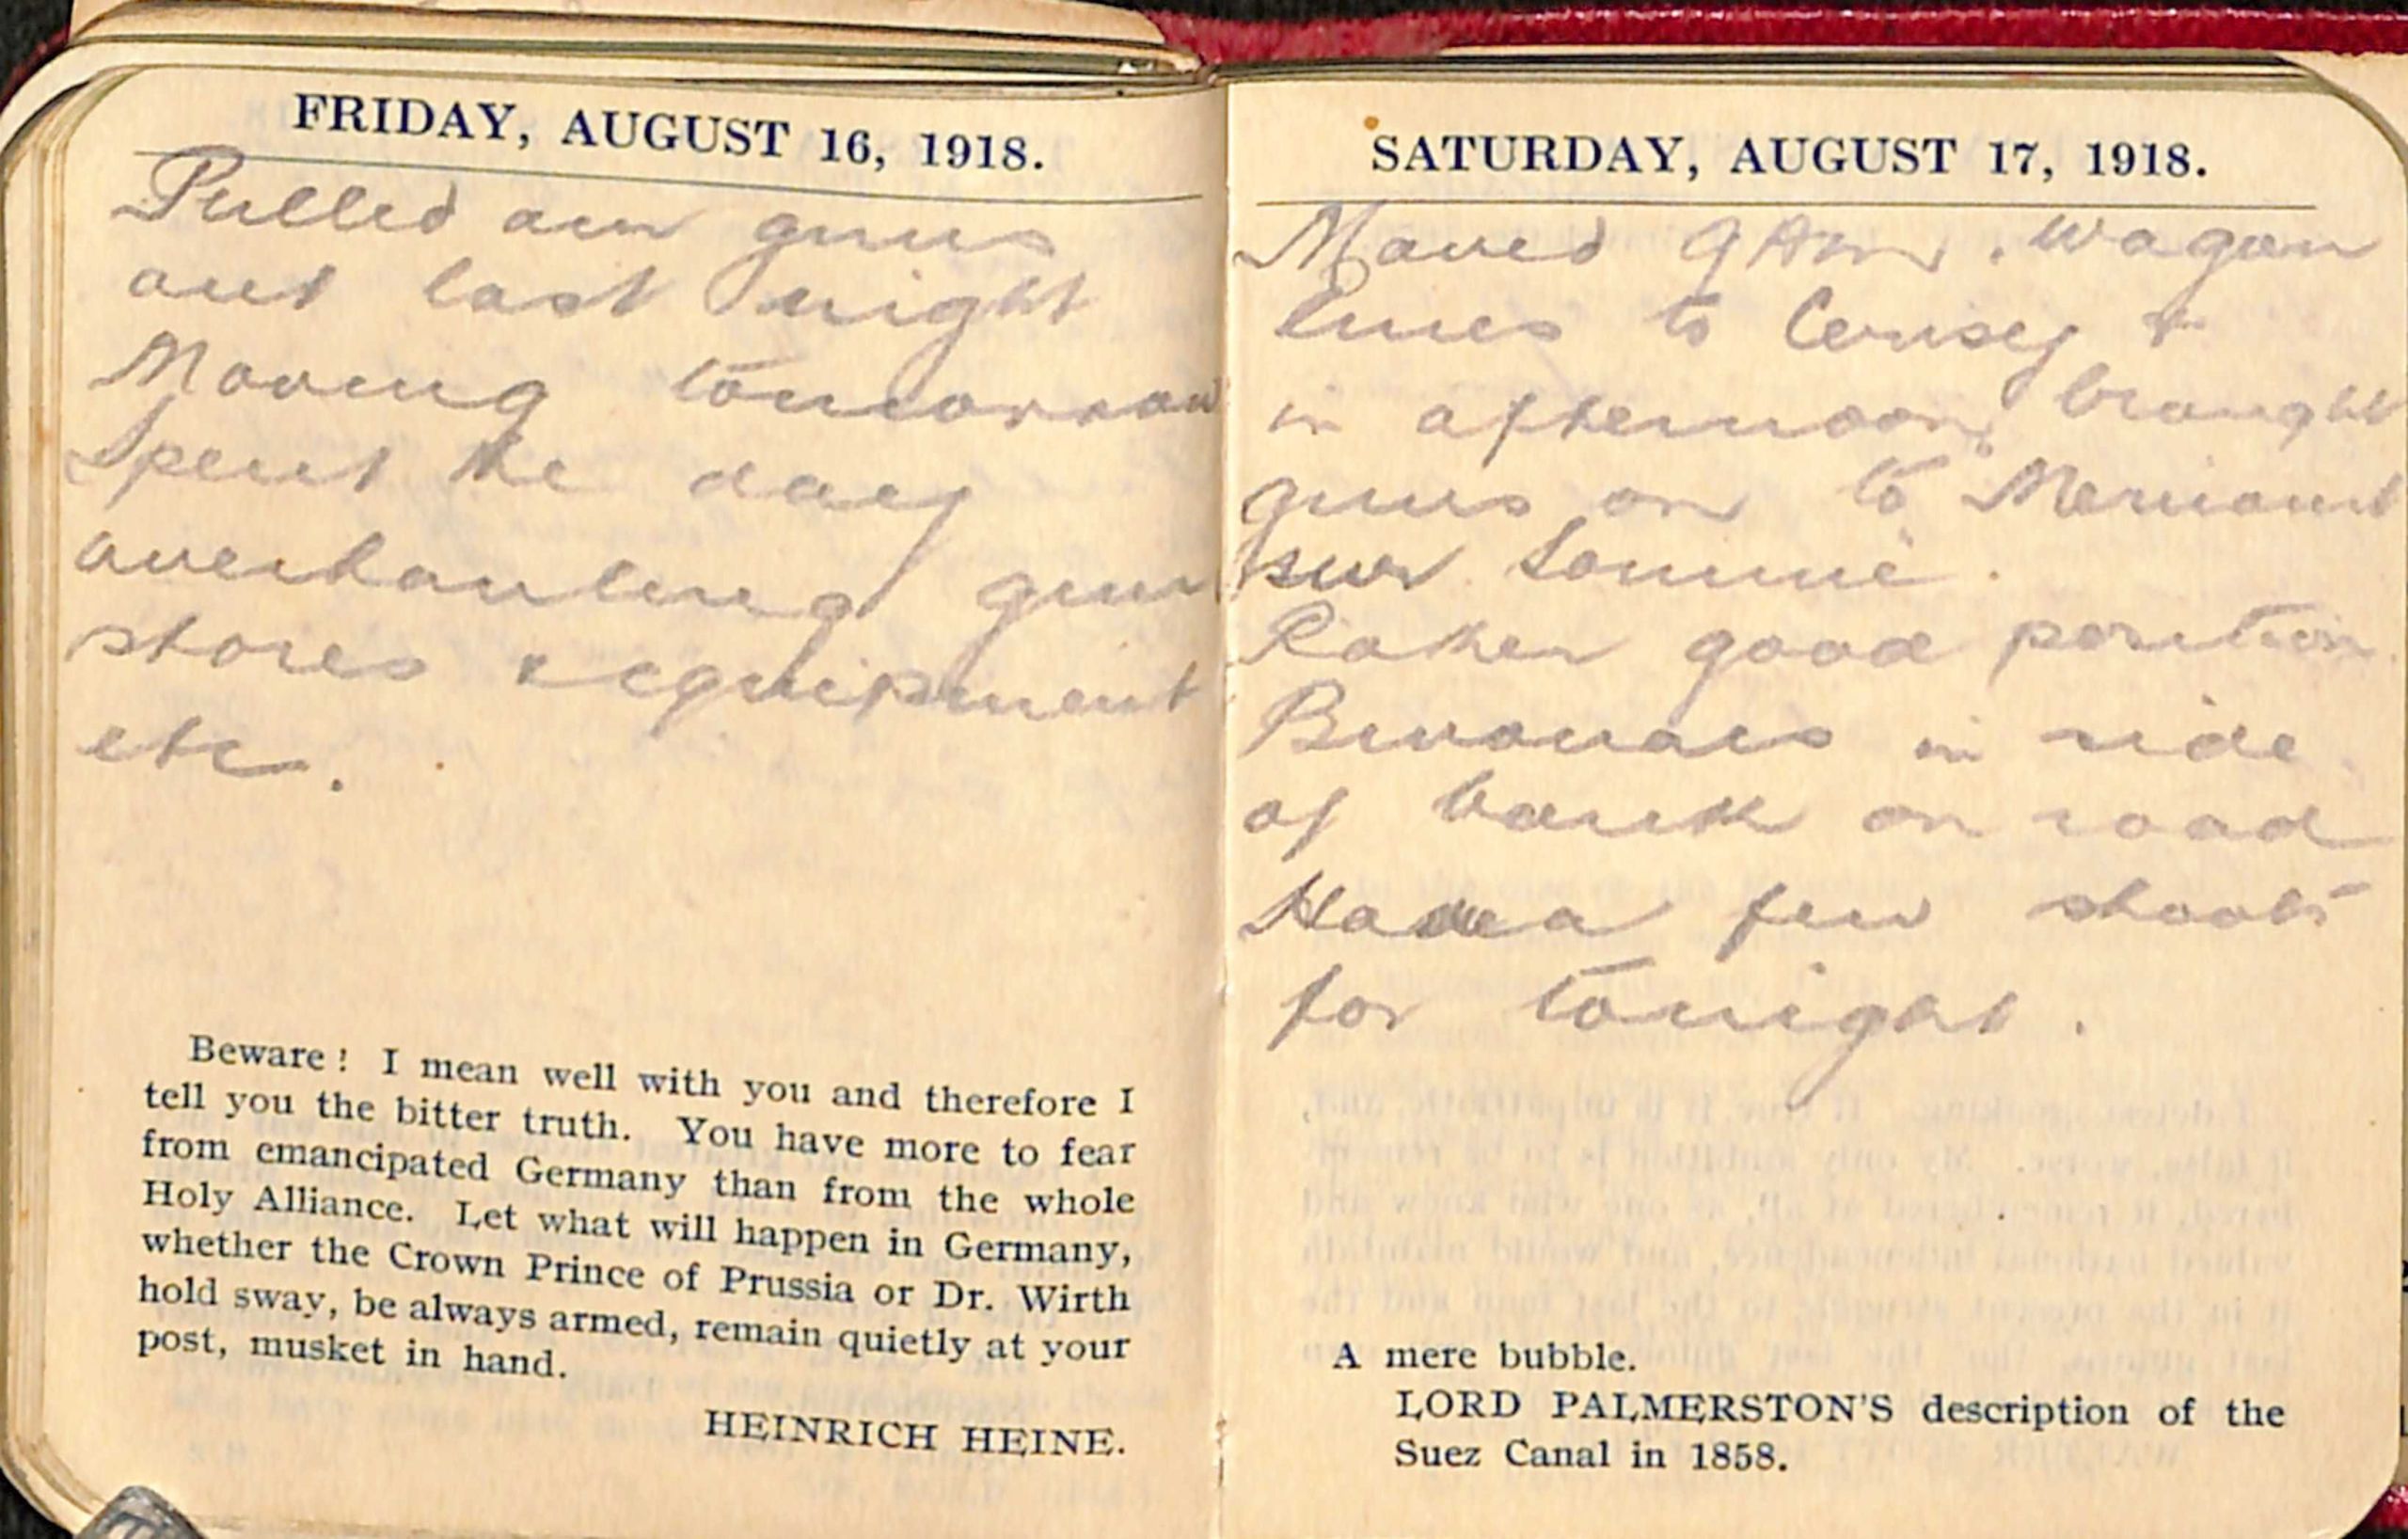 FRIDAY, AUGUST 16, 1918.
Pulled our guns
out last night
Moving tomorrow
Spent the day
overhauling gun
stores & equipment
etc.
Beware! I mean well with you and therefore I
tell you the bitter truth. You have more to fear
from emancipated Germany than from the whole
Holy Alliance. Let what will happen in Germany,
whether the Crown Prince of Prussia or Dr. Wirth
hold sway, be always armed, remain quietly at your
post, musket in hand.
HEINRICH HEINE.
SATURDAY, AUGUST 17, 1918.
Moved 9 AM. Wagon
lines to Cerisy &
in afternoon brought
guns on to
sur Somme.
Rather good position
Bivouacs in side
of bank on road
Have a few shoots
for tonight.
A mere bubble.
LORD PALMERSTON'S description of the
Suez Canal in 1858.